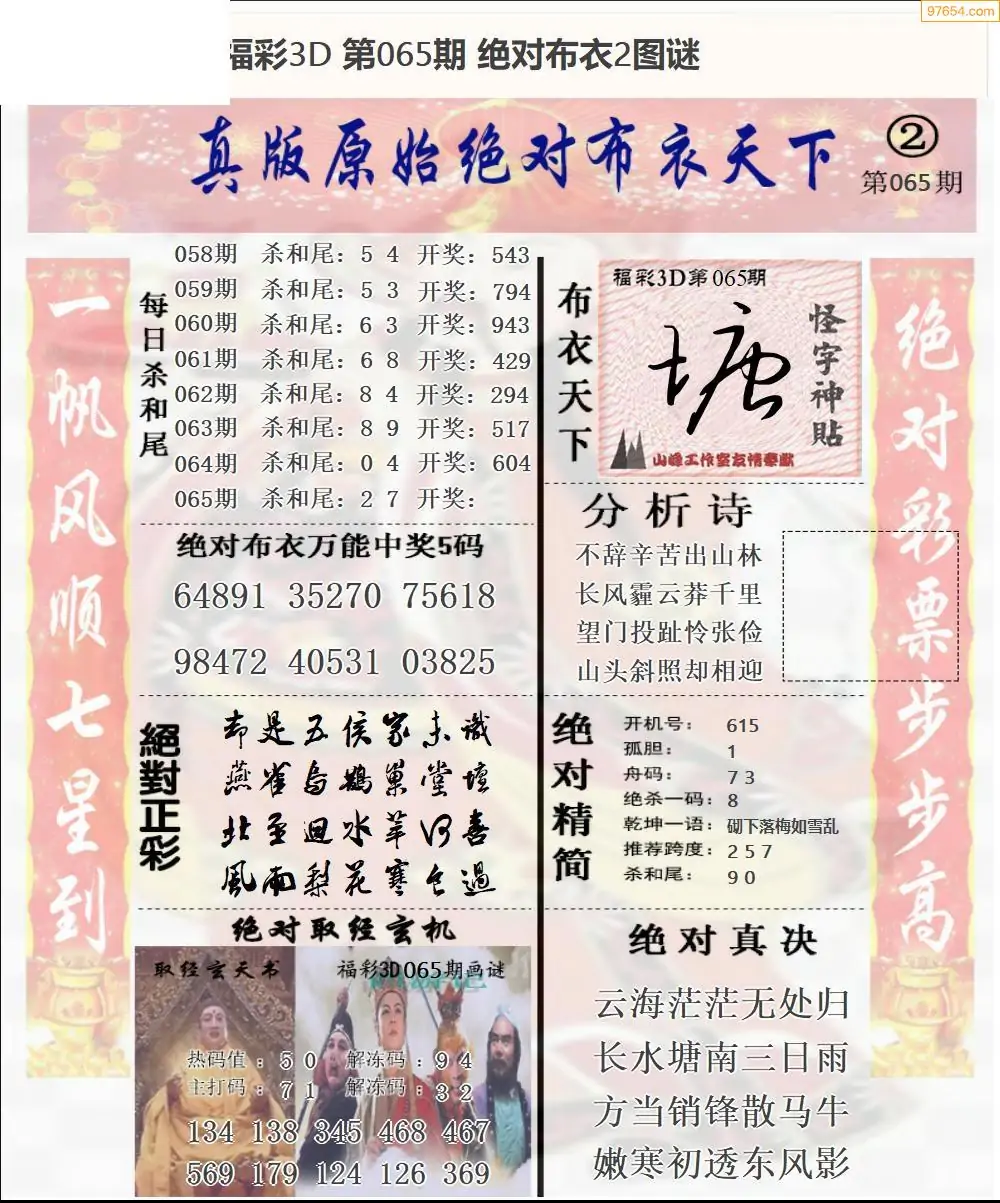 97654.com
福彩3D 第065期 绝对布衣2图谜
真版原始绝对布衣天下
②
第065期
一帆风顺七星到
每日杀和尾
058期 杀和尾：5 4 开奖：543
059期 杀和尾：5 3 开奖：794
060期 杀和尾：6 3 开奖：943
061期 杀和尾：6 8 开奖：429
062期 杀和尾：8 4 开奖：294
063期 杀和尾：8 9 开奖：517
064期 杀和尾：0 4 开奖：604
065期 杀和尾：2 7 开奖：
绝对布衣万能中奖5码
64891 35270 75618
98472 40531 03825
絕對正彩
却是五侯家未识
燕雀乌鹊巢堂坛
北至迴水苹河喜
風雨梨花寒食過
绝对取经玄机
取经玄天书
福彩3D065期画谜
热码值：5 0 解冻码：9 4
主打码：7 1 解冻码：3 2
134 138 345 468 467
569 179 124 126 369
布衣天下
福彩3D第065期
塘
怪字神贴
山峰工作室友情奉献
分析诗
不辞辛苦出山林
长风霾云莽千里
望门投趾怜张俭
山头斜照却相迎
绝对精简
开机号：615
孤胆：1
舟码：7 3
绝杀一码：8
乾坤一语：砌下落梅如雪乱
推荐跨度：2 5 7
杀和尾：9 0
绝对真决
云海茫茫无处归
长水塘南三日雨
方当销锋散马牛
嫩寒初透东风影
绝对彩票步步高